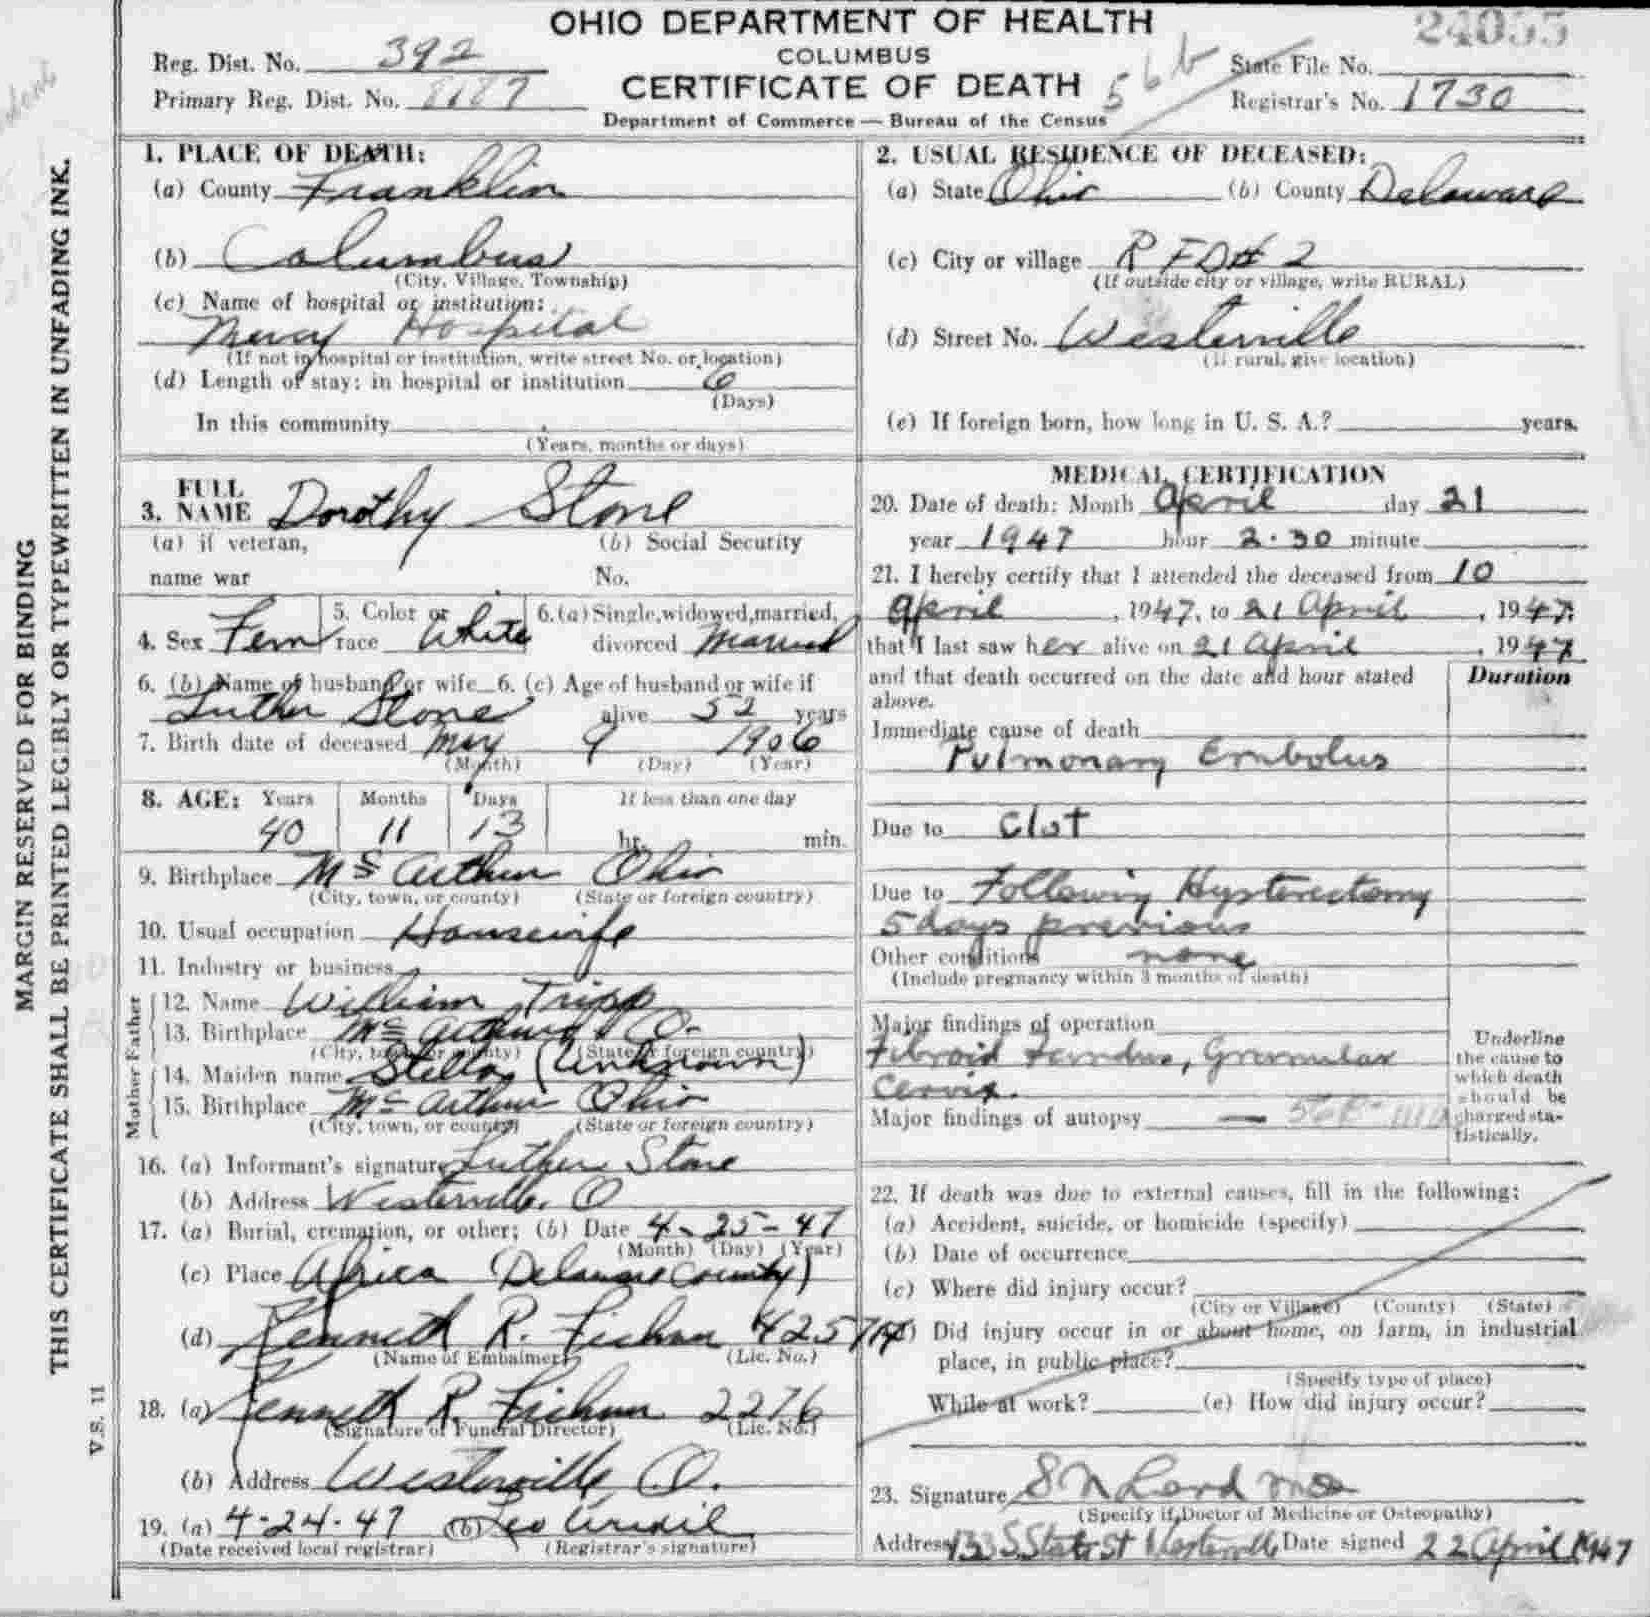 OHIO DEPARTMENT OF HEALTH
COLUMBUS
CERTIFICATE OF DEATH
Department of Commerce — Bureau of the Census
24055
56b
Reg. Dist. No. 392
Primary Reg. Dist. No.
State File No.
Registrar's No. 1730
MARGIN RESERVED FOR BINDING
THIS CERTIFICATE SHALL BE PRINTED LEGIBLY OR TYPEWRITTEN IN UNFADING INK.
V.S. 11
1. PLACE OF DEATH:
(a) County Franklin
(b) Columbus
(City, Village, Township)
(c) Name of hospital or institution:
Mercy Hospital
(If not in hospital or institution, write street No. or location)
(d) Length of stay: in hospital or institution 6
(Days)
In this community
(Years, months or days)
2. USUAL RESIDENCE OF DECEASED:
(a) State Ohio (b) County Delaware
(c) City or village R F D # 2
(If outside city or village, write RURAL)
(d) Street No. Westerville
(If rural, give location)
(e) If foreign born, how long in U. S. A.? years.
3. FULL NAME Dorothy Stone
(a) if veteran, (b) Social Security
name war No.
4. Sex Fem 5. Color or race White 6. (a) Single, widowed, married, divorced Married
6. (b) Name of husband or wife 6. (c) Age of husband or wife if
Luther Stone alive 52 years
7. Birth date of deceased May 9 1906
(Month) (Day) (Year)
8. AGE: Years Months Days If less than one day
40 11 13 hr. min.
9. Birthplace McArthur Ohio
(City, town, or county) (State or foreign country)
10. Usual occupation Housewife
11. Industry or business
Father
12. Name William Tripp
13. Birthplace McArthur O.
(City, town, or county) (State or foreign country)
Mother
14. Maiden name Stella (Unknown)
15. Birthplace McArthur Ohio
(City, town, or county) (State or foreign country)
16. (a) Informant's signature Luther Stone
(b) Address Westerville, O
17. (a) Burial, cremation, or other; (b) Date 4-25-47
(Month) (Day) (Year)
(c) Place Africa (Delaware County)
(d) Kenneth R. 4257A
(Name of Embalmer) (Lic. No.)
18. (a) Kenneth R. 2276
(Signature of Funeral Director) (Lic. No.)
(b) Address Westerville O.
19. (a) 4-24-47 (b)
(Date received local registrar) (Registrar's signature)
MEDICAL CERTIFICATION
20. Date of death: Month April day 21
year 1947 hour 2.30 minute
21. I hereby certify that I attended the deceased from 10
April, 1947, to 21 April, 1947;
that I last saw her alive on 21 April, 1947
and that death occurred on the date and hour stated
above.
Duration
Immediate cause of death
Pulmonary Embolus
Due to Clot
Due to Following Hysterectomy
5 days previous
Other conditions none
(Include pregnancy within 3 months of death)
Major findings of operation
Fibroid Fundus, Granular
Cervix.
Major findings of autopsy —
Underline
the cause to
which death
should be
charged sta-
tistically.
22. If death was due to external causes, fill in the following:
(a) Accident, suicide, or homicide (specify)
(b) Date of occurrence
(c) Where did injury occur?
(City or Village) (County) (State)
(d) Did injury occur in or about home, on farm, in industrial
place, in public place?
(Specify type of place)
While at work? (e) How did injury occur?
23. Signature S N Lord MD
(Specify if Doctor of Medicine or Osteopathy)
Address S State St Westerville Date signed 22 April 1947